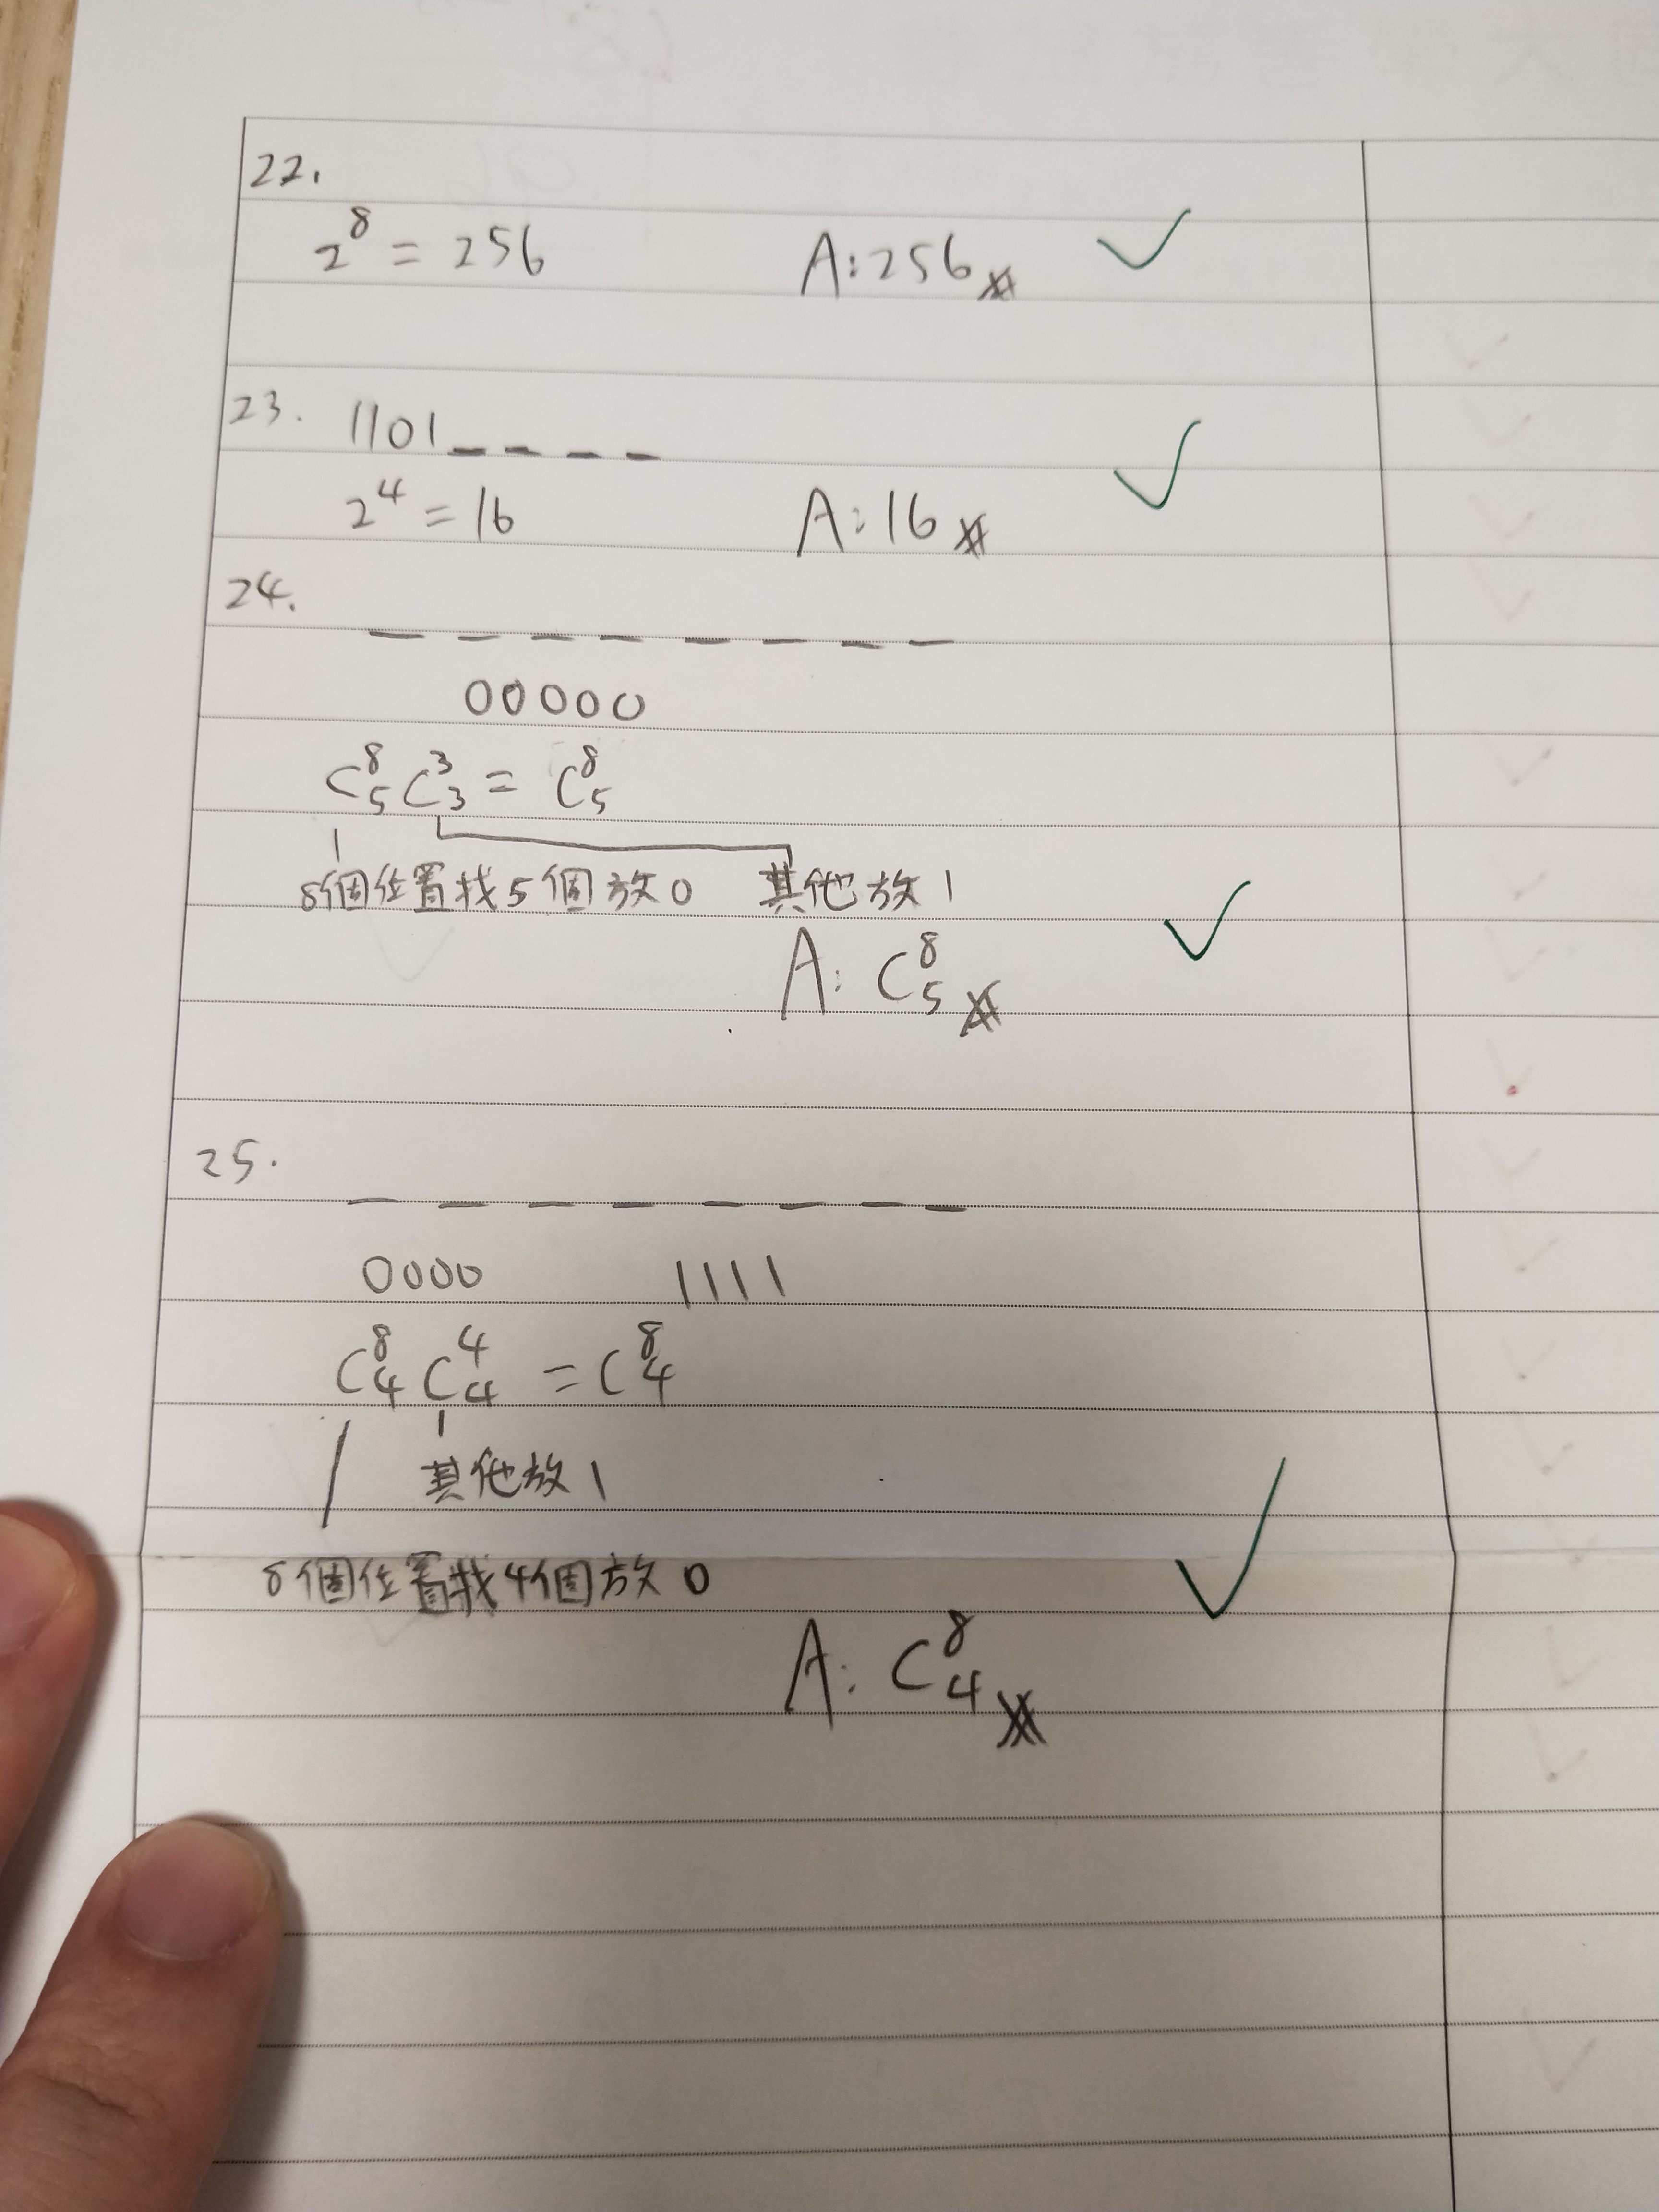 22.
2⁸ = 256 A: 256
23. 1101_ _ _ _
2⁴ = 16 A: 16
24.
_ _ _ _ _ _ _ _
00000
C⁸₅ C³₃ = C⁸₅
8個位置找5個放0 其他放1
A: C⁸₅
25.
_ _ _ _ _ _ _ _
0000 1111
C⁸₄ C⁴₄ = C⁸₄
其他放1
8個位置找4個放0
A: C⁸₄